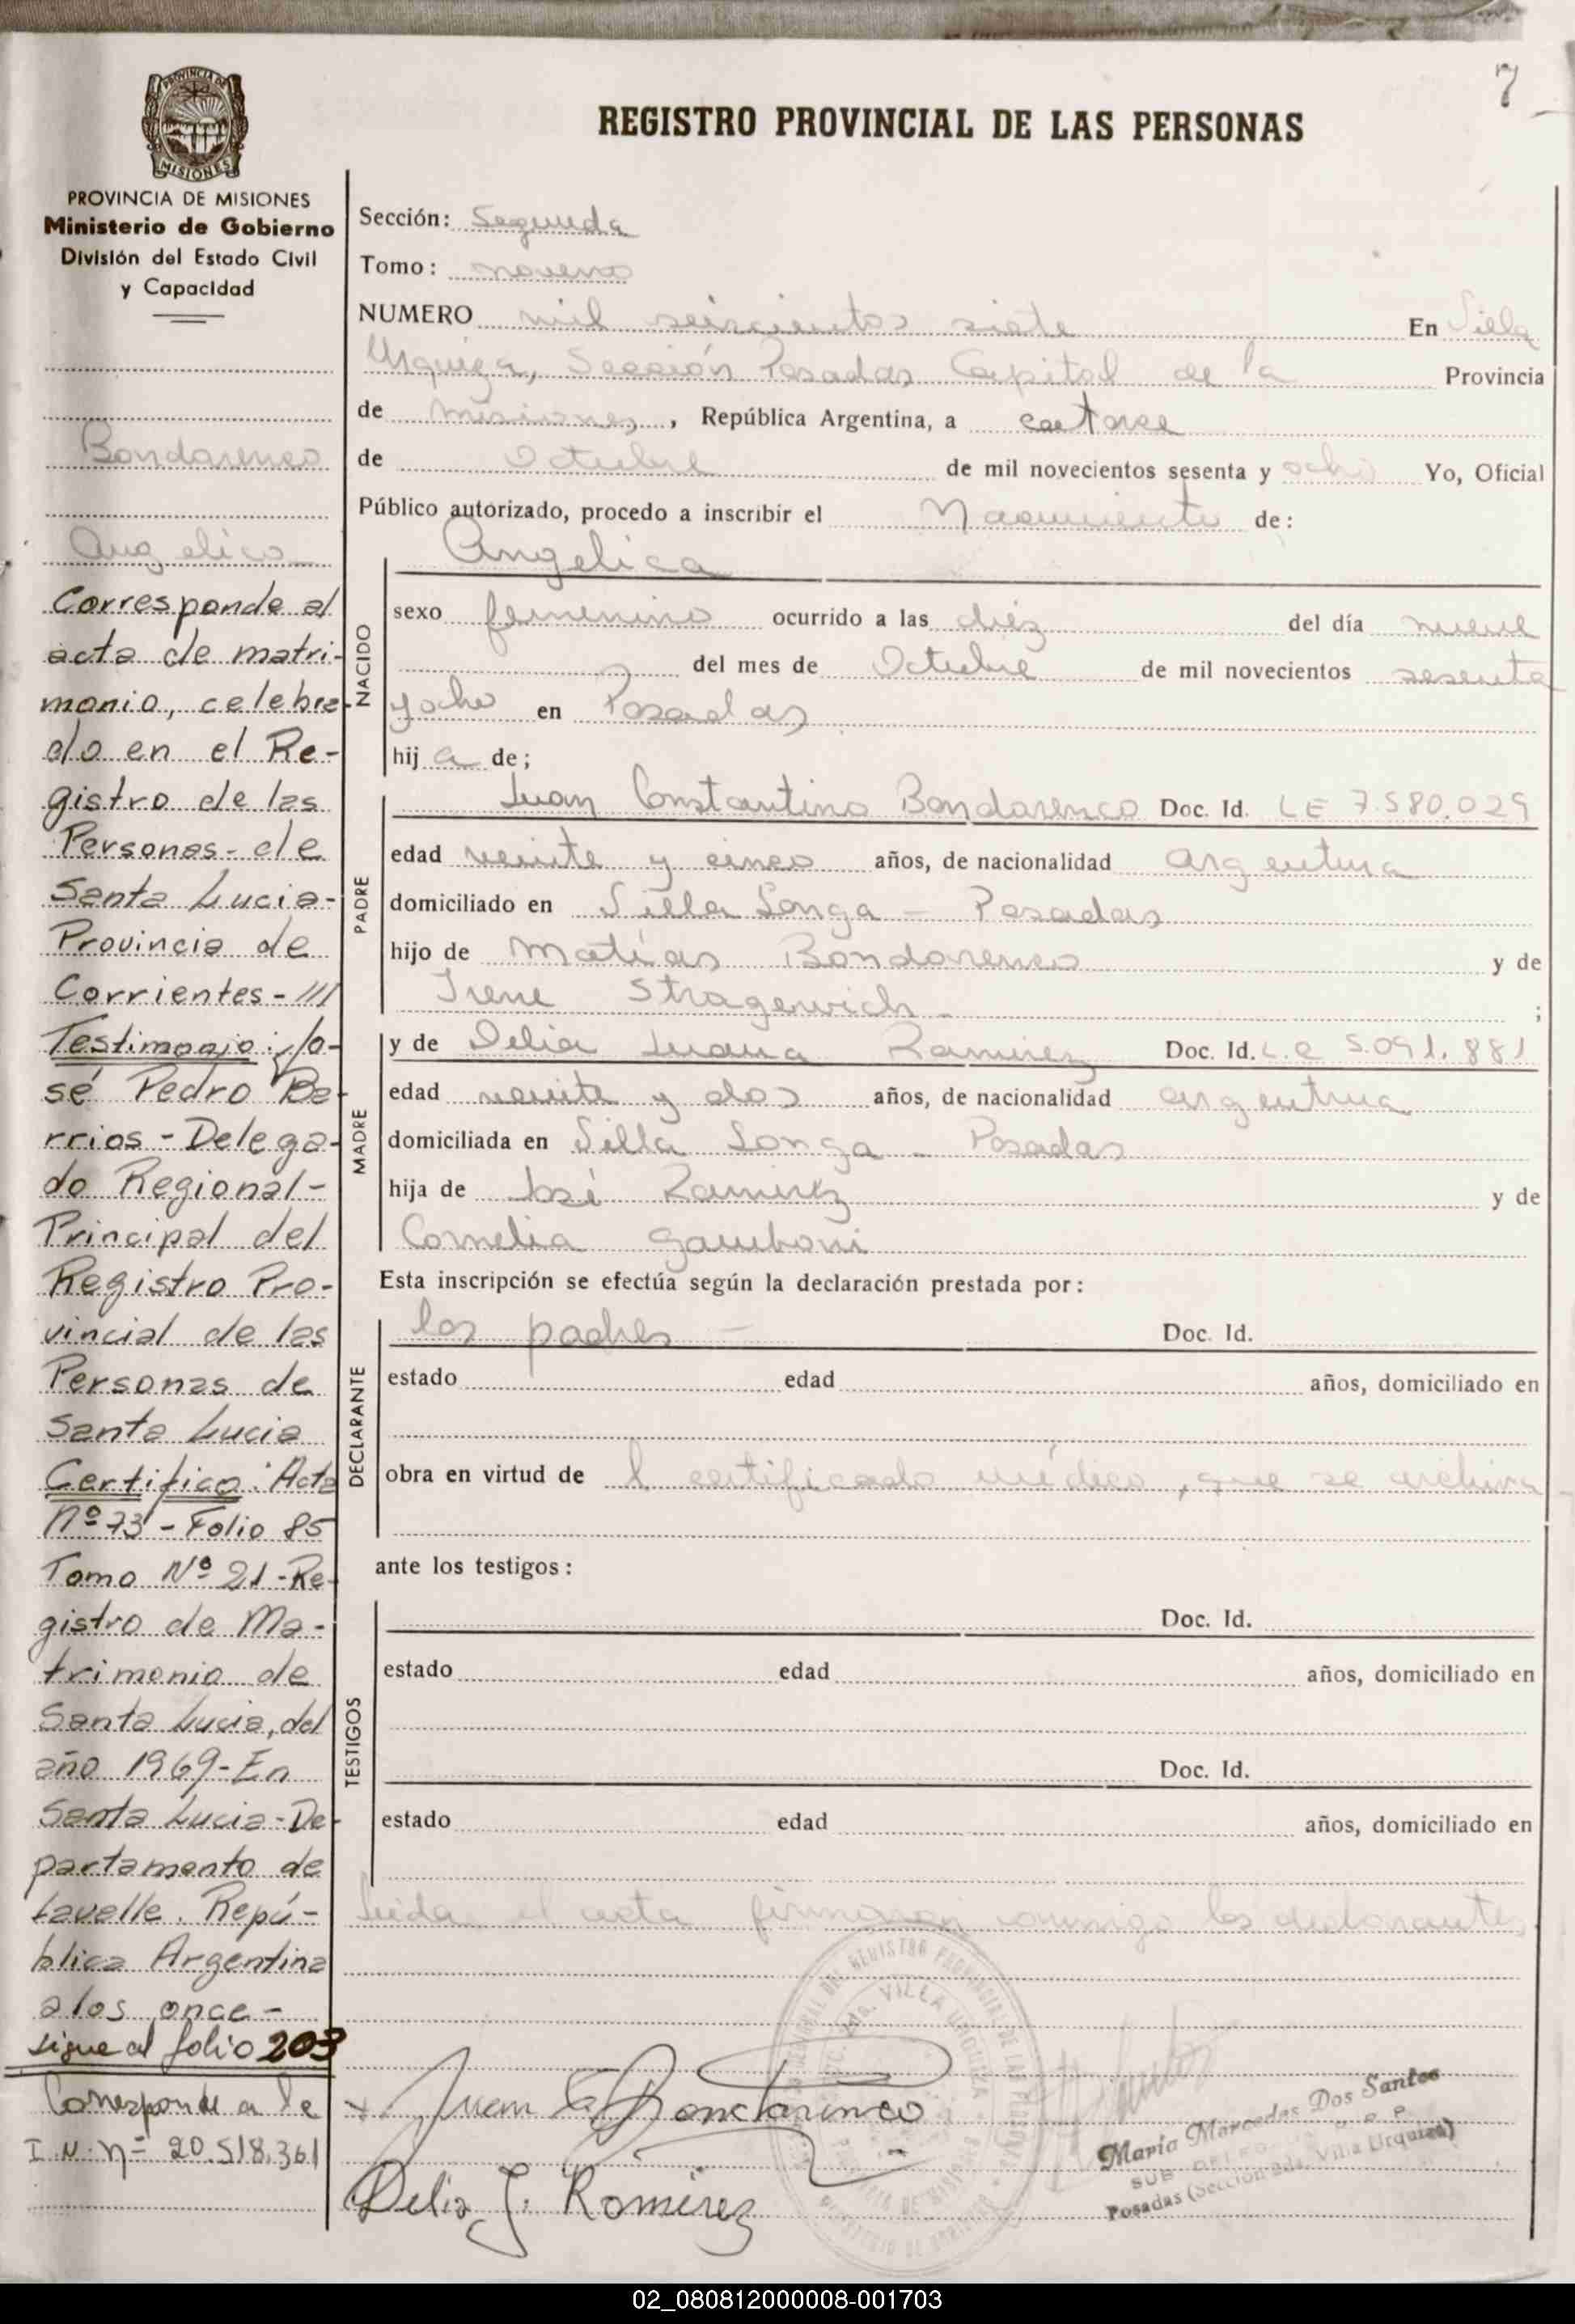 7
REGISTRO PROVINCIAL DE LAS PERSONAS
PROVINCIA DE MISIONES
MISIONES
PROVINCIA DE MISIONES
Ministerio de Gobierno
División del Estado Civil
y Capacidad
Bondarenco
Angelica
Corresponde al
acta de matri-
monio, celebra-
do en el Re-
gistro de las
Personas - de
Santa Lucia -
Provincia de
Corrientes - ///
Testimonio: Jo-
sé Pedro Ba-
rrios - Delega-
do Regional -
Principal del
Registro Pro-
vincial de las
Personas de
Santa Lucia
Certifico: Acta
Nº 73 - Folio 85
Tomo Nº 21 - Re-
gistro de Ma-
trimonio de
Santa Lucia, del
año 1969 - En
Santa Lucia - De-
partamento de
Lavalle. Repú-
blica Argentina
a los once -
sigue al folio 203
Corresponde a la
I.N. nº 20.518.361
Sección: Segunda
Tomo: noveno
NUMERO mil seiscientos siete En Villa
Urquiza, Sección Posadas Capital de la Provincia
de Misiones, República Argentina, a catorce
de Octubre de mil novecientos sesenta y ocho Yo, Oficial
Público autorizado, procedo a inscribir el Nacimiento de:
NACIDO
Angelica
sexo femenino ocurrido a las diéz del día nueve
del mes de Octubre de mil novecientos sesenta
y ocho en Posadas
hij a de;
PADRE
Juan Constantino Bondarenco Doc. Id. LE 7.580.029
edad veinte y cinco años, de nacionalidad argentina
domiciliado en Villa Longa - Posadas
hijo de Matías Bondarenco y de
Irene Stragewich ;
MADRE
y de Delia Juana Ramirez Doc. Id. L.C 5.091.881
edad veinte y dos años, de nacionalidad argentina
domiciliada en Villa Longa - Posadas
hija de José Ramirez y de
Cornelia Gamboni
Esta inscripción se efectúa según la declaración prestada por:
DECLARANTE
los padres - Doc. Id.
estado edad años, domiciliado en
obra en virtud de l certificado médico, que se archiva
ante los testigos:
TESTIGOS
Doc. Id.
estado edad años, domiciliado en
Doc. Id.
estado edad años, domiciliado en
Leida el acta firmaron conmigo los declarantes
Juan C. Bondarenco
Delia J. Ramirez
María Mercedes Dos Santos
Posadas (Sección 2da. Villa Urquiza)
02_080812000008-001703